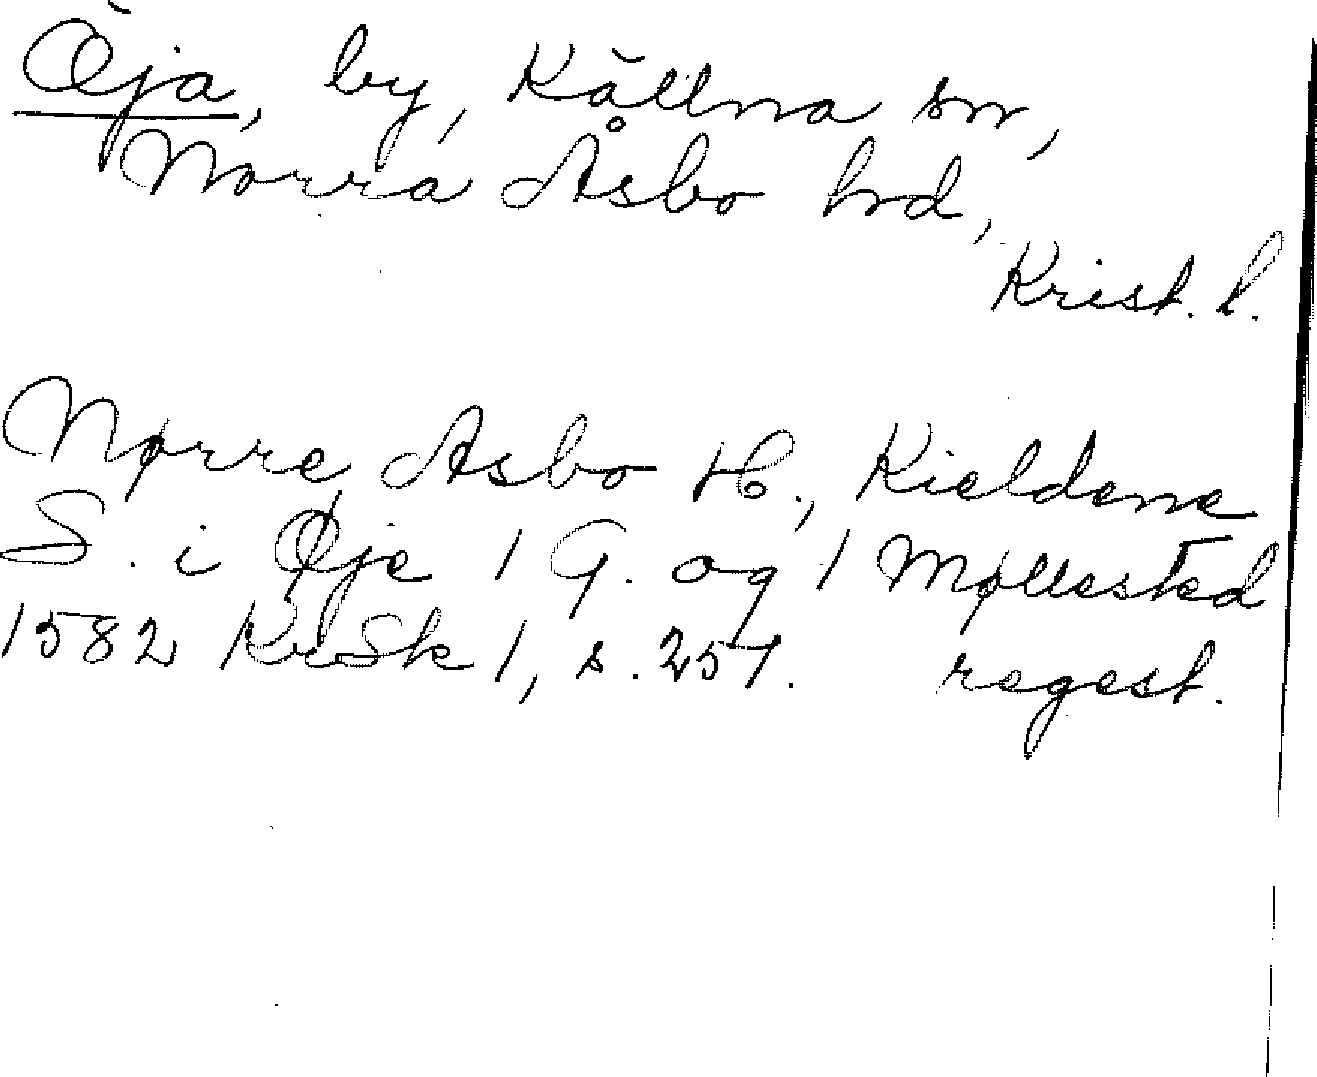 Öja, by, Källna sn,
Norra Åsbo hrd,
Krist. l.
Nørre Asbo H., Kieldene
S. i Øje 1 G. og 1 Møllested
1582 KrSk 1, s. 257. regest.